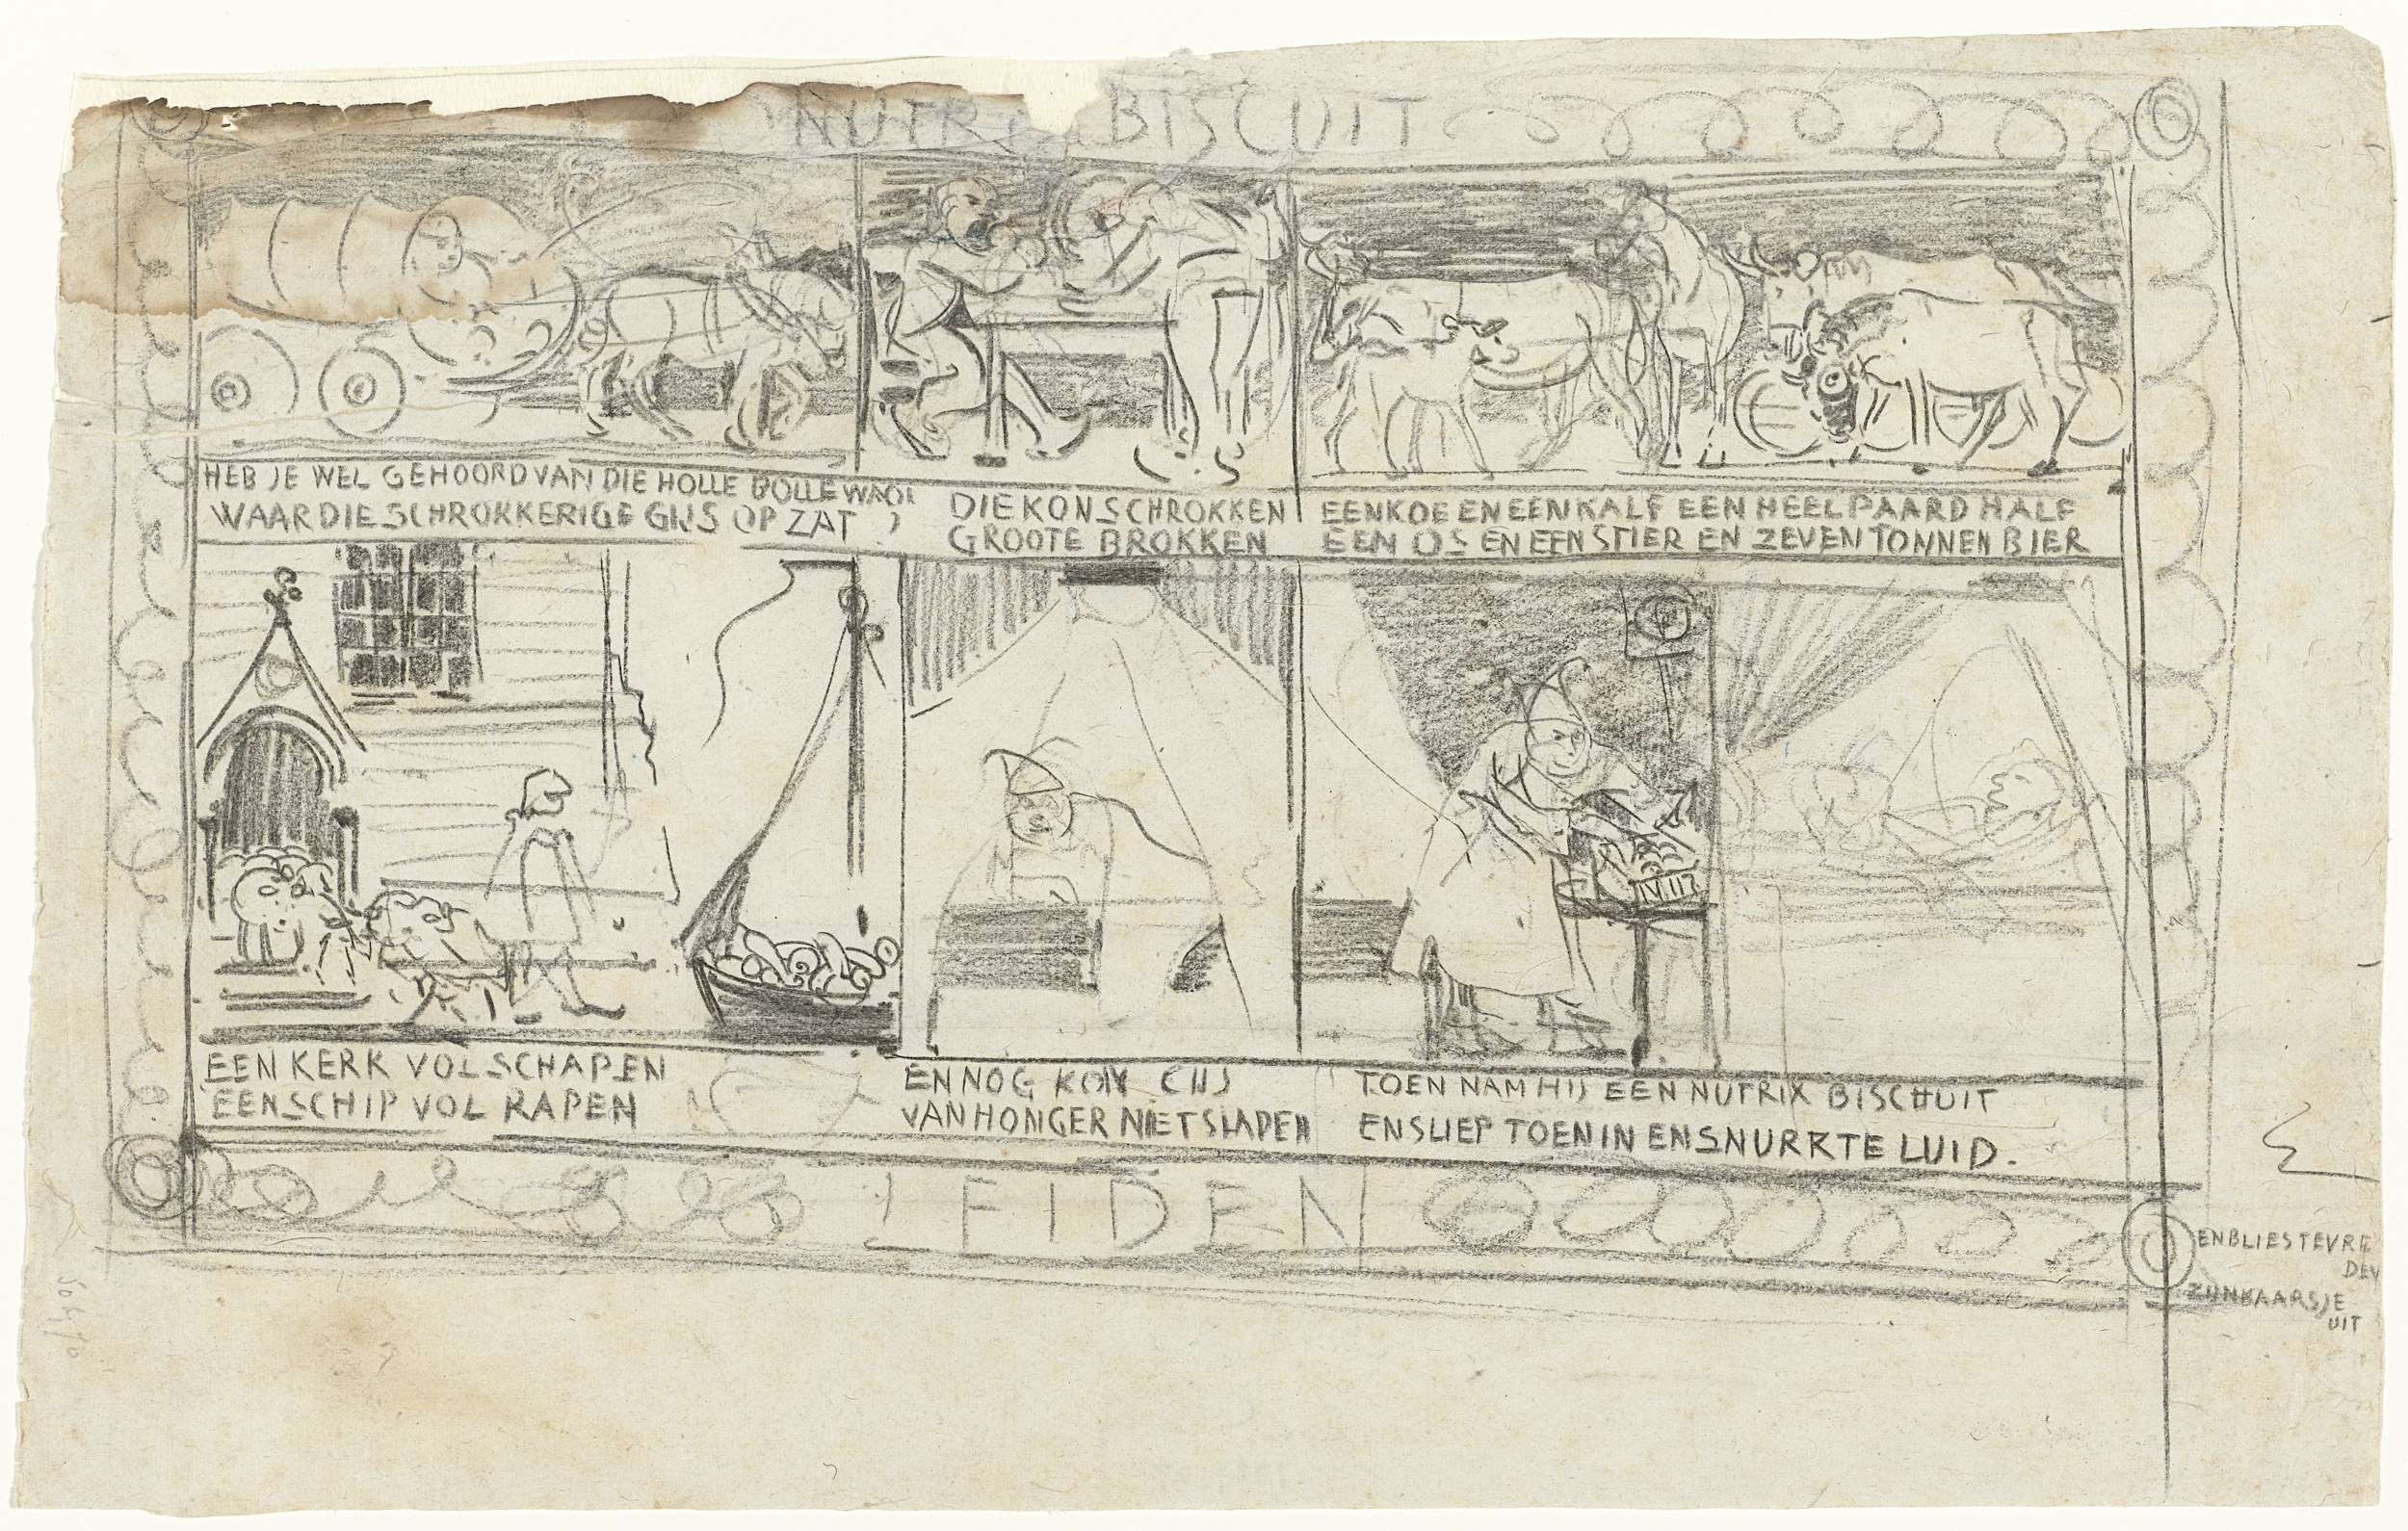 BISCUIT
HEB JE WEL GEHOORD VAN DIE HOLLE BOLLE
WAAR DIE SCHROKKERIGE GIJS OP ZAT ?
DIE KON SCHROKKEN
GROOTE BROKKEN
EEN KOE EN EEN KALF EEN HEEL PAARD HALF
EEN OS EN EEN STIER EN ZEVEN TONNEN BIER
EEN KERK VOL SCHAPEN
EEN SCHIP VOL RAPEN
EN NOG KON
VAN HONGER NIET SLAPEN
TOEN NAM HIJ EEN NUTRIX BISCHUIT
EN SLIEP TOEN IN EN SNURRTE LUID.
LEIDEN
EN BLIES TEVRE
DEN
ZIJN KAARSJE
UIT